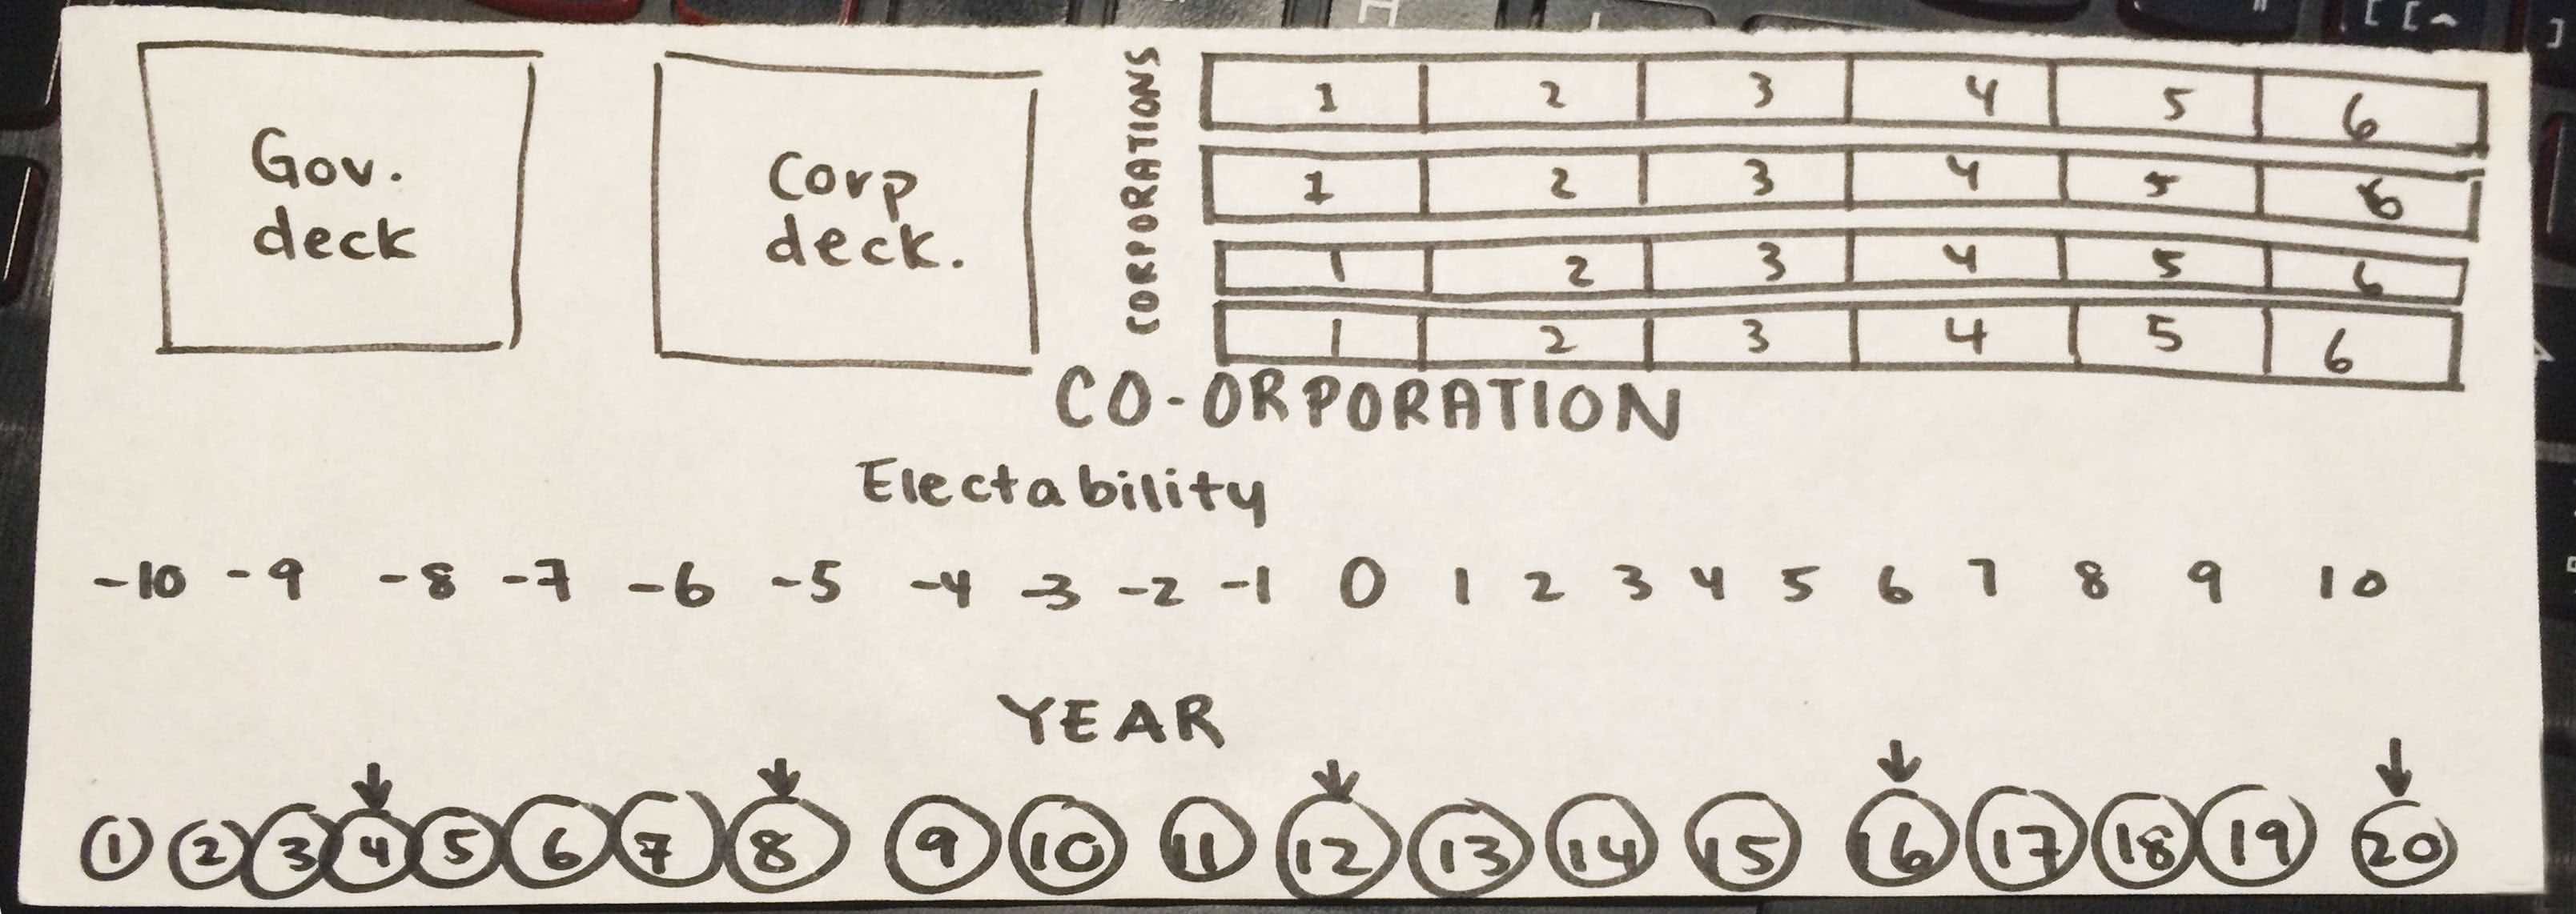 Gov.
deck
Corp
deck.
CORPORATIONS
1 2 3 4 5 6
1 2 3 4 5 6
1 2 3 4 5 6
1 2 3 4 5 6
CO-ORPORATION
Electability
-10 -9 -8 -7 -6 -5 -4 -3 -2 -1 0 1 2 3 4 5 6 7 8 9 10
YEAR
1 2 3 4 5 6 7 8 9 10 11 12 13 14 15 16 17 18 19 20